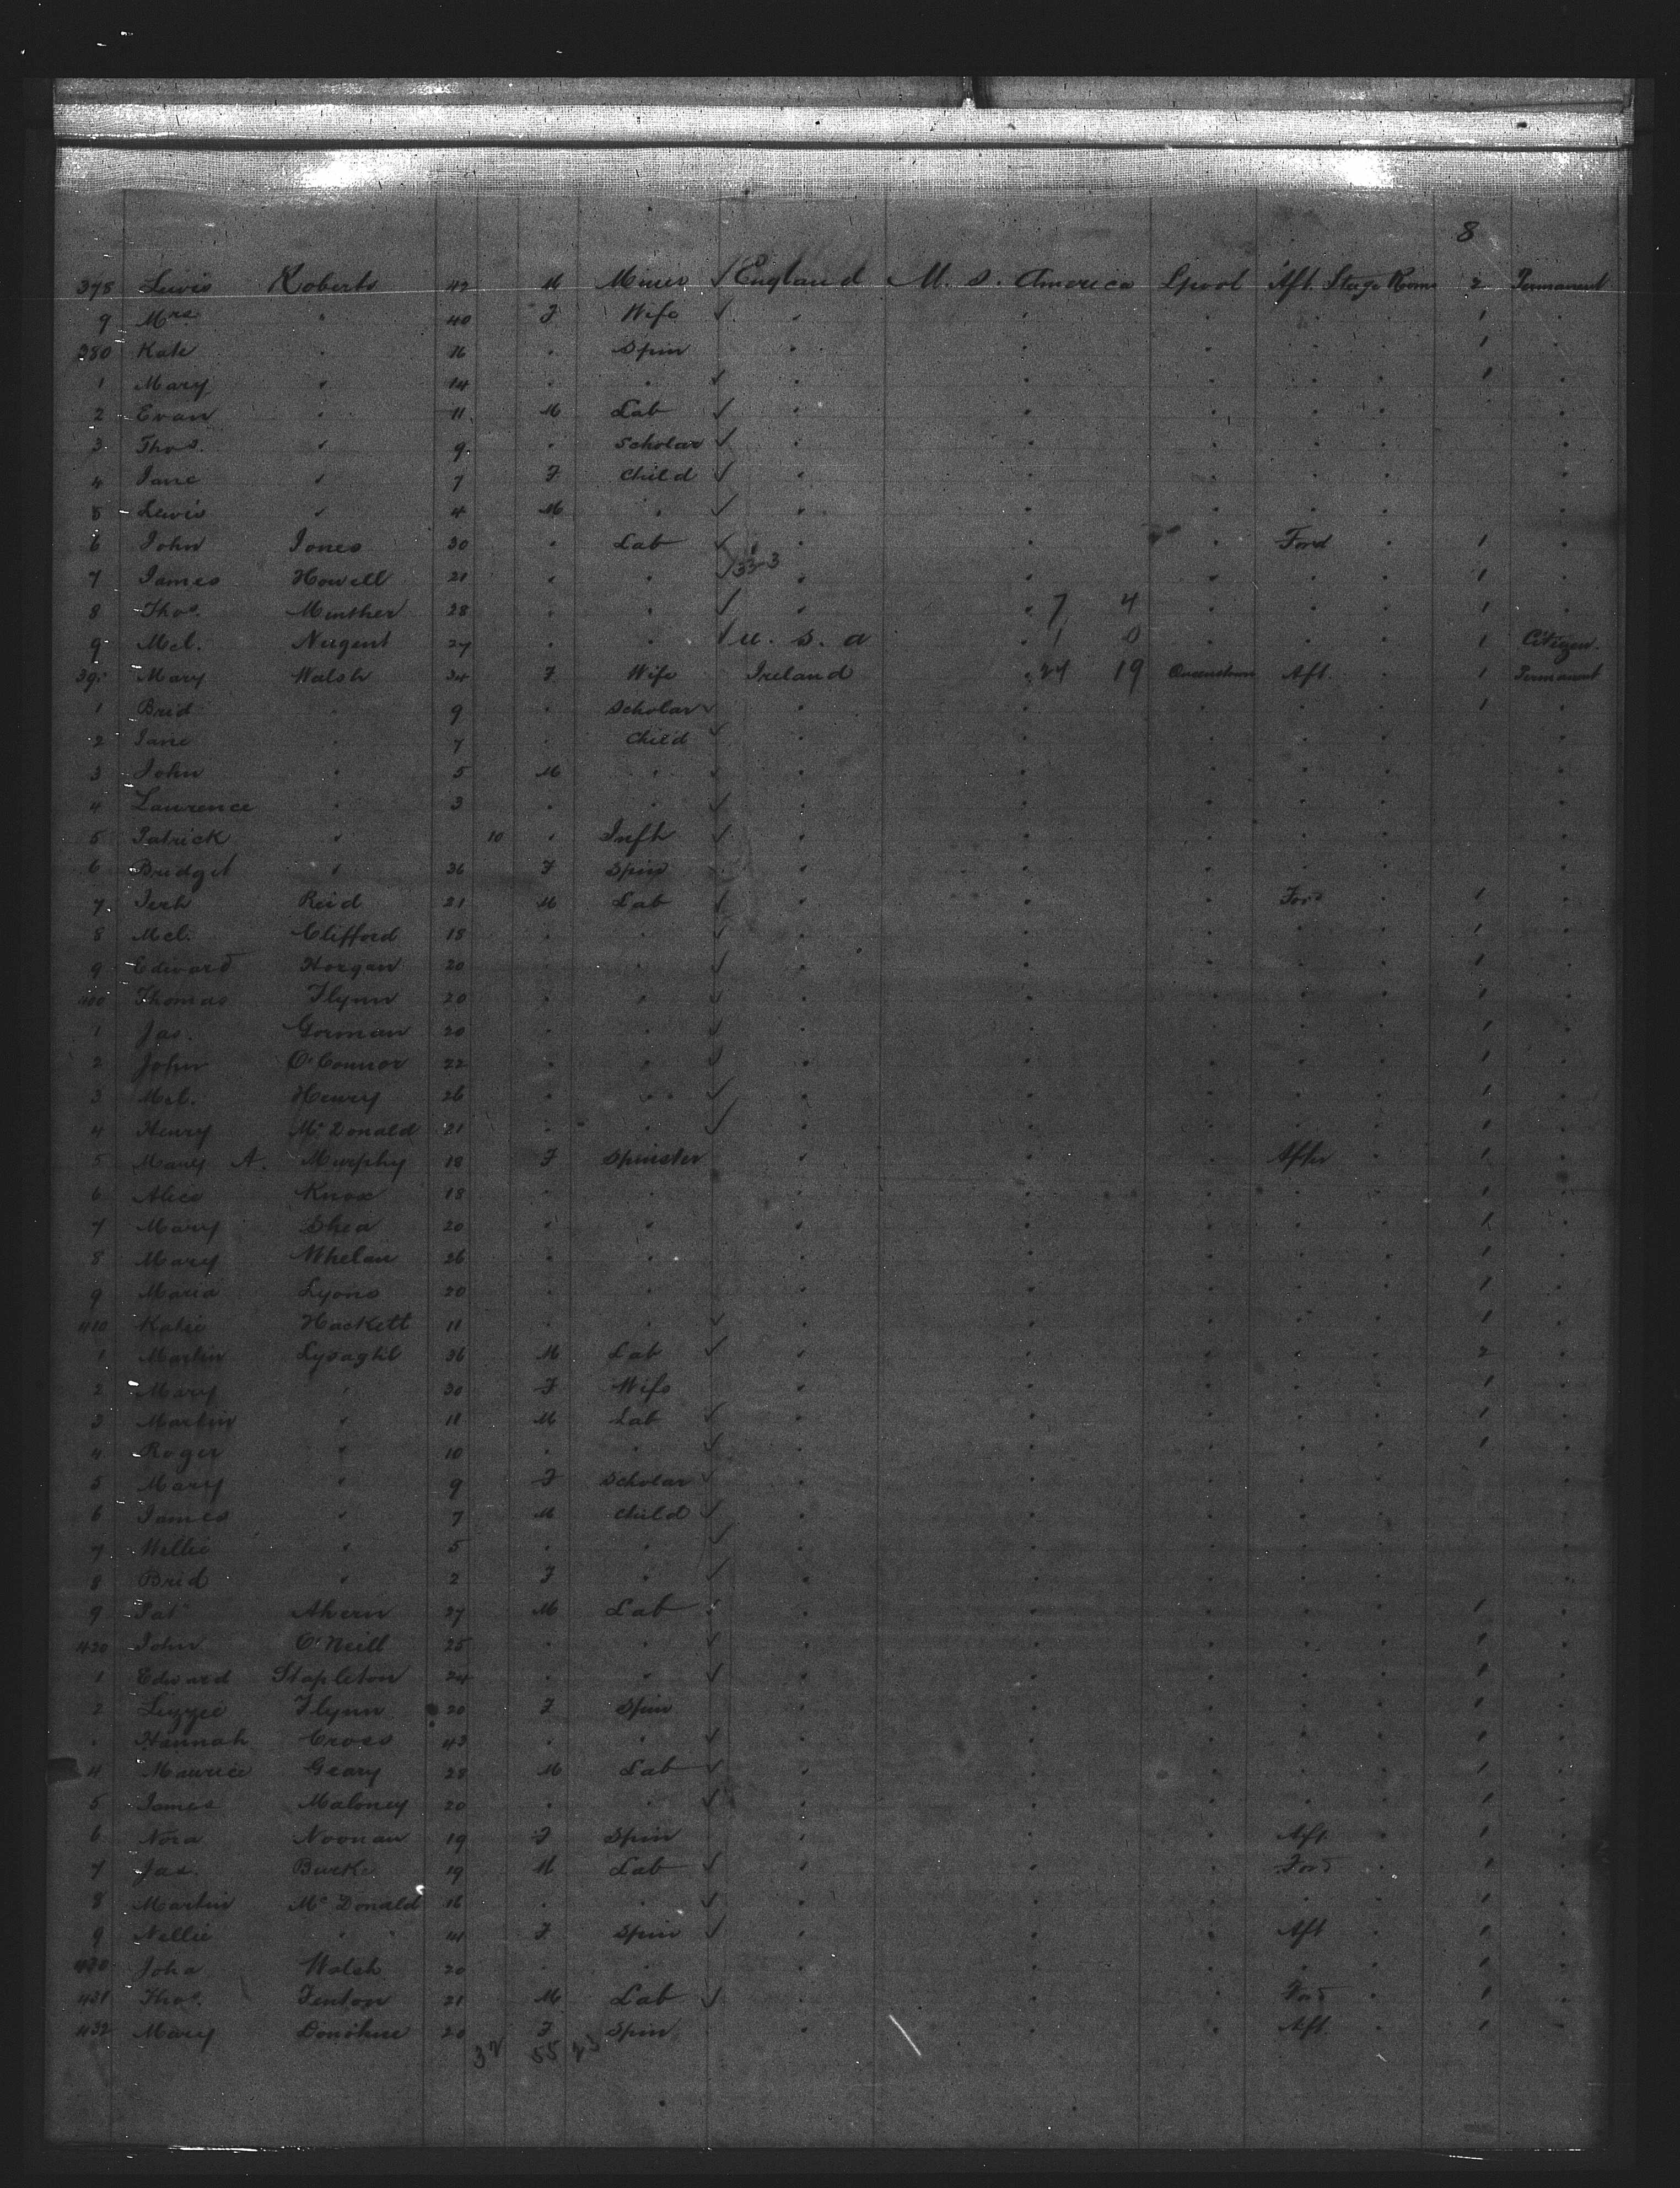 8
378 Lewis Roberts 42 M Miner ✓ England U. S. America Lpool Aft. Steage Room 2 Permanent
9 Mrs " 40 F Wife ✓ " " " " " " 1 "
380 Kate " 16 " Spin " " " " " " 1 "
1 Mary " 14 " " ✓ " " " " " " 1 "
2 Evan " 11 M Lab ✓ " " " " " " "
3 Thos. " 9 " Scholar ✓ " " " " " " "
4 Jane " 7 F Child ✓ " " " " " " "
5 Lewis " 4 M " ✓ " " " " " " "
6 John Jones 30 " Lab ✓ " " " Ford " 1 "
7 James Howell 21 " " ✓ 33-3 " " " " " " 1 "
8 Thos. Minther 28 " " ✓ " 7 4 " " " " 1 "
9 Mcl. Nugent 27 " " ✓ U. S. A " 1 0 " " " " 1 Citizen
39 Mary Walsh 34 F Wife Ireland " 24 19 Queenstown Aft. " 1 Permanent
1 Brid " 9 " Scholar ✓ " " " " " " 1 "
2 Jane " 7 " Child ✓ " " " " " " "
3 John " 5 M " ✓ " " " " " " "
4 Lawrence " 3 " " ✓ " " " " " " "
5 Patrick " 10 " Inft ✓ " " " " " " "
6 Bridget " 36 F Spin " " " " " " "
7 Jerh Reid 21 M Lab ✓ " " " Ford " 1 "
8 Mcl. Clifford 18 " " ✓ " " " " " " 1 "
9 Edward Horgan 20 " " ✓ " " " " " " 1 "
400 Thomas Flynn 20 " " ✓ " " " " " " 1 "
1 Jas. Gorman 20 " " ✓ " " " " " " 1 "
2 John O'Connor 22 " " ✓ " " " " " " 1 "
3 Mcl. Henry 26 " " ✓ " " " " " " 1 "
4 Henry Mc Donald 21 " " ✓ " " " " " " 1 "
5 Mary A. Murphy 18 F Spinster " " " After " 1 "
6 Alice Knox 18 " " " " " " " " 1 "
7 Mary Shea 20 " " " " " " " " 1 "
8 Mary Whelan 26 " " " " " " " " 1 "
9 Maria Lyons 20 " " " " " " " " 1 "
410 Katie Hackett 11 " " ✓ " " " " " " 1 "
1 Martin Lysaght 36 M Lab ✓ " " " " " " 2 "
2 Mary " 30 F Wife " " " " " " 1 "
3 Martin " 11 M Lab ✓ " " " " " " 1 "
4 Roger " 10 " " ✓ " " " " " " 1 "
5 Mary " 9 F Scholar ✓ " " " " " " "
6 James " 7 M Child ✓ " " " " " " "
7 Willie " 5 " " ✓ " " " " " " "
8 Brid " 2 F " ✓ " " " " " " "
9 Pat Ahern 27 M Lab " " " " " " 1 "
420 John O'Neill 25 " " ✓ " " " " " " 1 "
1 Edward Stapleton 24 " " ✓ " " " " " " 1 "
2 Lizzie Flynn 20 F Spin " " " " " " 1 "
" Hannah Cross 43 " " ✓ " " " " " " 1 "
4 Maurice Geary 28 M Lab ✓ " " " " " " 1 "
5 James Maloney 20 " " ✓ " " " " " " 1 "
6 Nora Noonan 19 F Spin " " " Aft " 1 "
7 Jas. Burke 19 M Lab ✓ " " " Ford " 1 "
8 Martin Mc Donald 16 " " ✓ " " " " " " 1 "
9 Nellie " 14 F Spin ✓ " " " Aft " 1 "
430 Joha Walsh 20 " " " " " " " " 1 "
431 Thos. Fenton 21 M Lab ✓ " " " Ford " 1 "
432 Mary Donohue 20 F Spin " " " Aft " 1 "
32 55 23